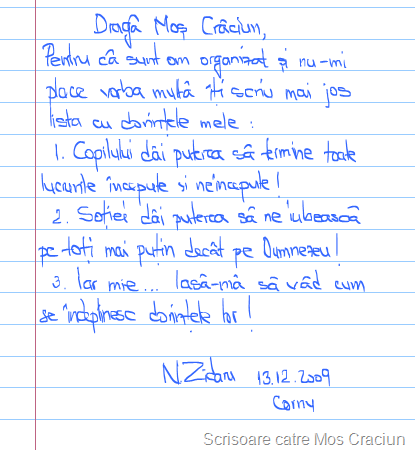 Dragă Moș Crăciun,
Pentru că sunt om organizat și nu-mi
place vorba multă îți scriu mai jos
lista cu dorințele mele :
1. Copilului dăi puterea să termine toate
lucrurile începute si neîncepute!
2. Soției dăi puterea să ne iubească
pe toți mai puțin decât pe Dumnezeu!
3. Iar mie... lasă-mă să văd cum
se îndeplinesc dorințele lor!
NZidaru 13.12.2009
Corny
Scrisoare catre Mos Craciun